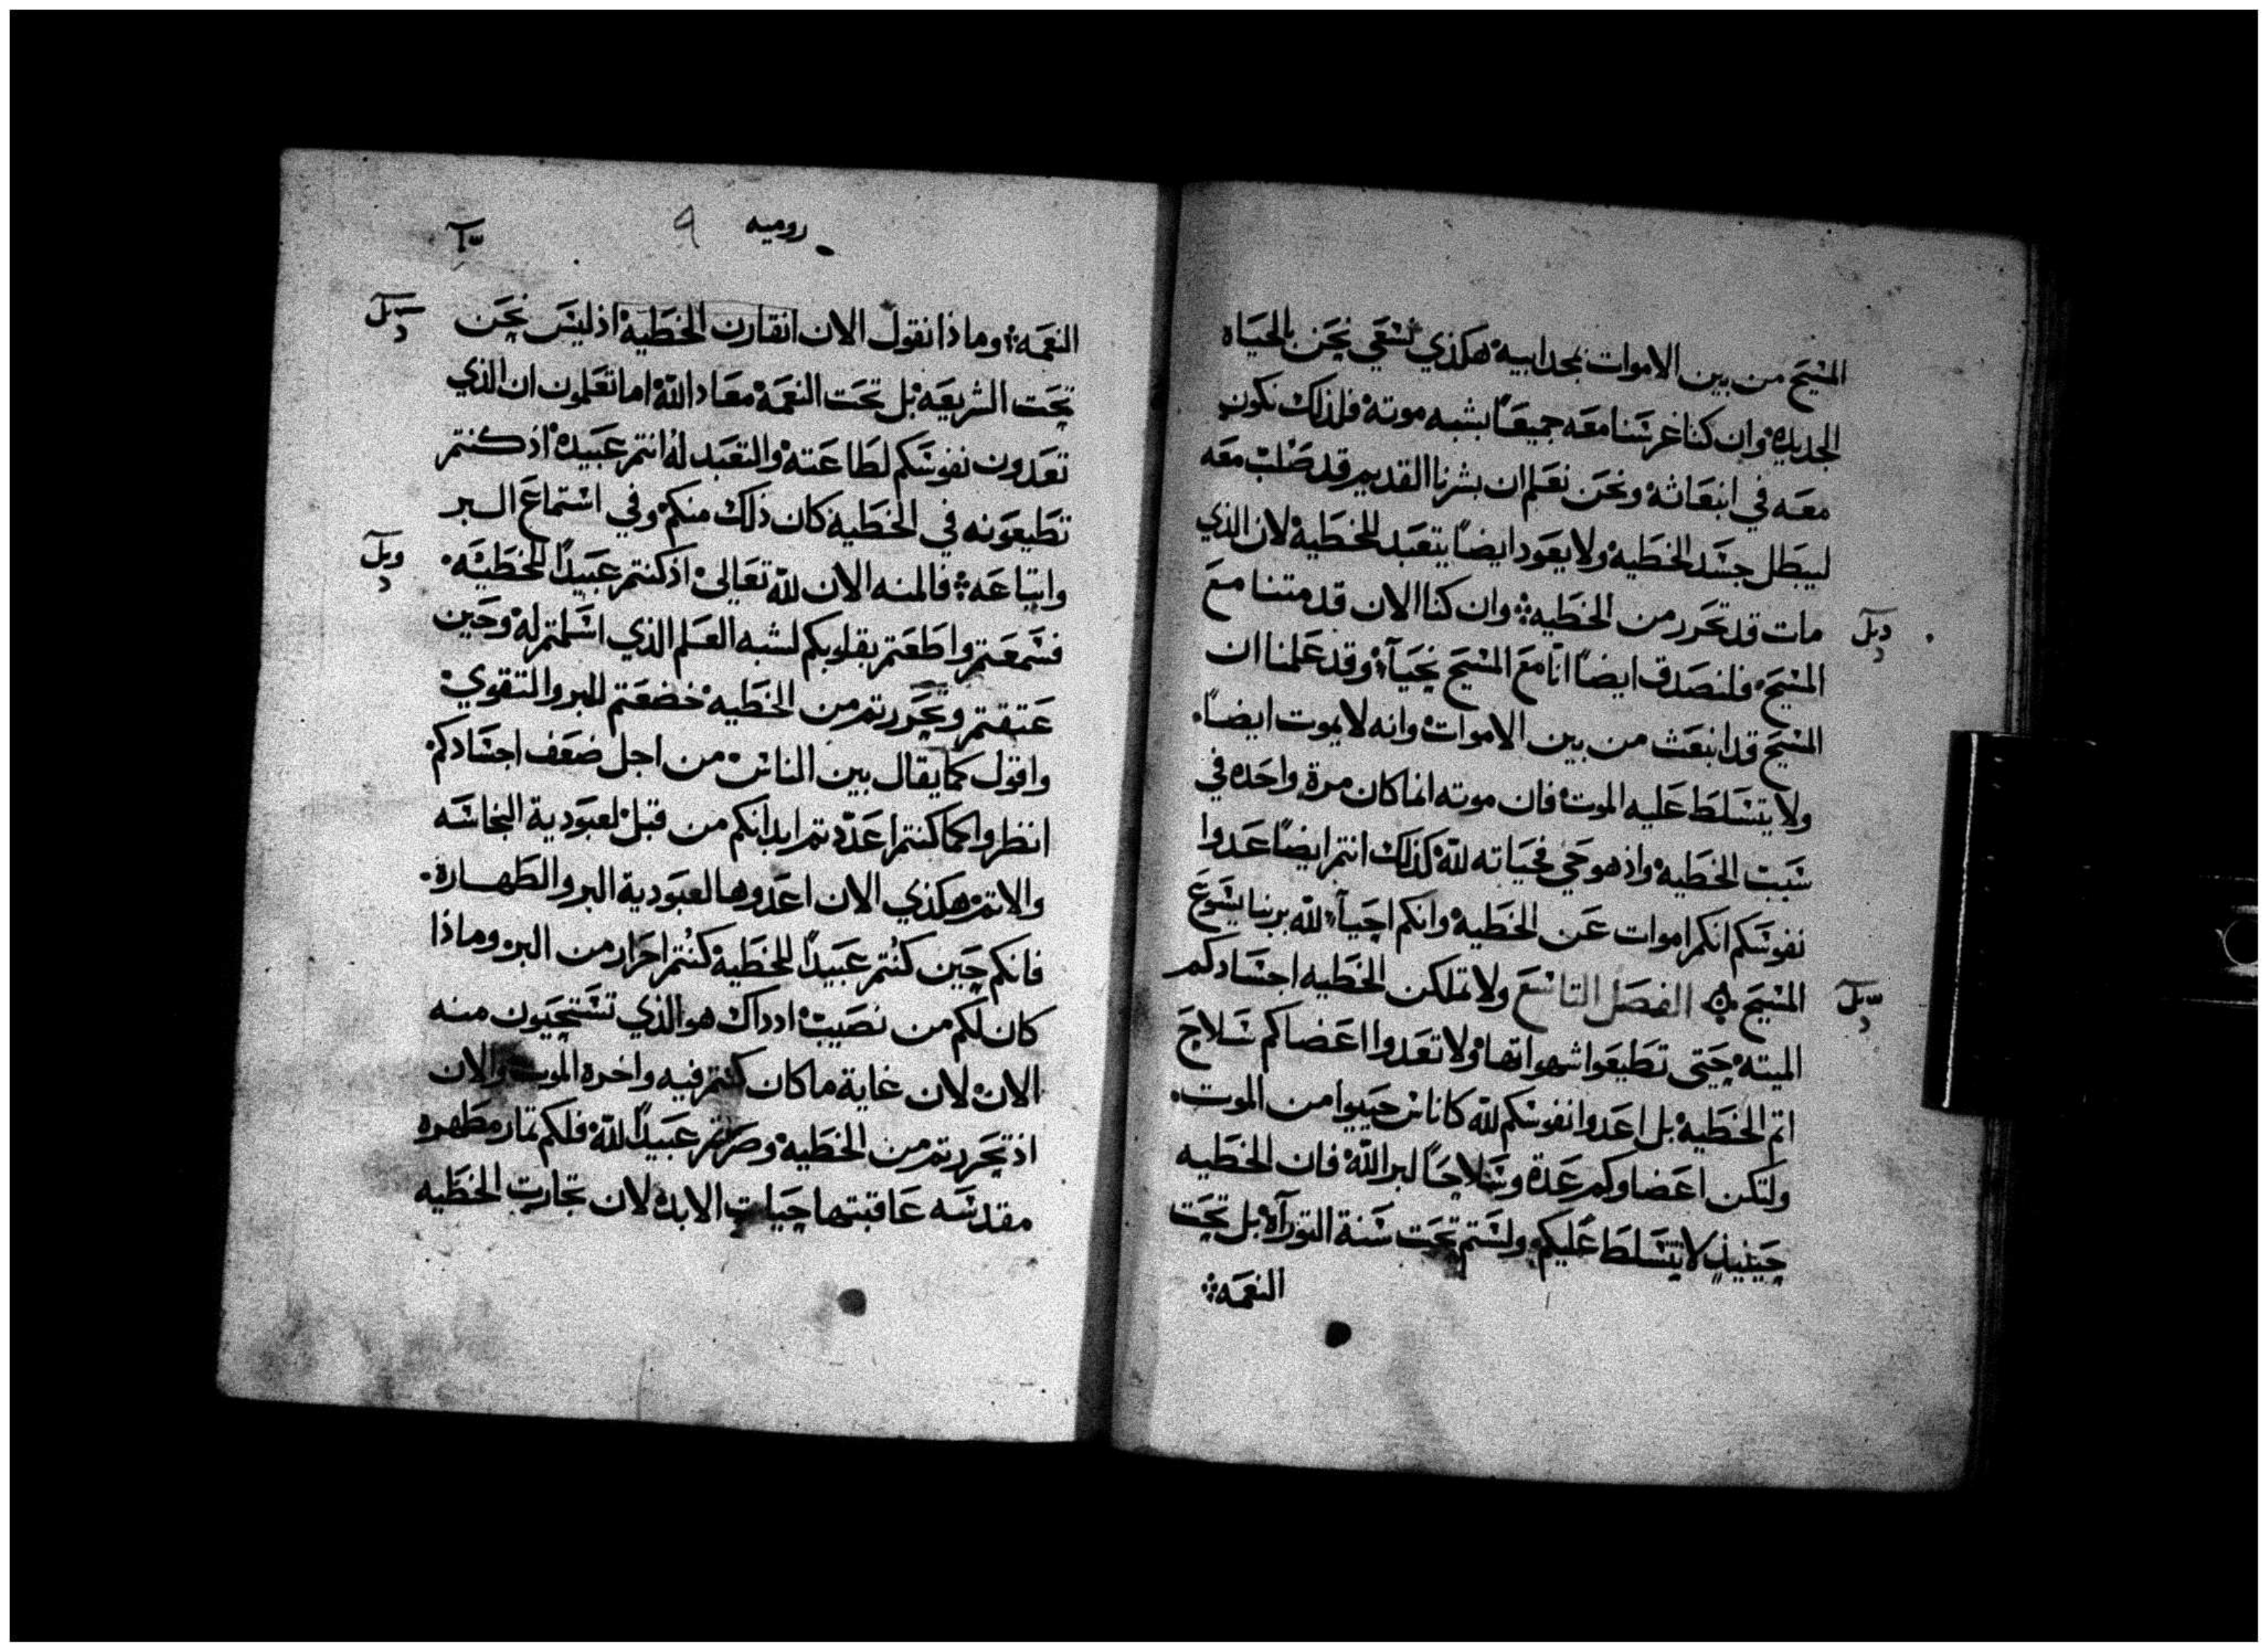 المسيح من بين الاموات بمجد ابيه هكذي نسعي نحن بالحياه
الجديده وان كنا غرسنا معه جميعًا بشبه موته فلذلك نكون
معه في انبعاثه ونحن نعلم ان بشرنا القديم قد صلب معه
ليبطل جسد الخطيه ولا يعود ايضًا يتعبد للخطيه لان الذي
مات قد تحرر من الخطيه وان كنا الان قد متنا مع
المسيح فلنصدق ايضًا انّا مع المسيح نحيا وقد علمنا ان
المسيح قد انبعث من بين الاموات وانه لا يموت ايضًا
ولا يتسلط عليه الموت فان موته انما كان مرة واحده في
سبب الخطيه واذ هو حي فحياته لله كذلك انتم ايضًا عدوا
نفوسكم انكم اموات عن الخطيه وانكم احياء لله بربنا يسوع
المسيح الفصل التاسع ولا تملكن الخطيه اجسادكم
الميته حتى تطيعوا شهواتها ولا تعدوا اعضاكم سلاح
اثم الخطيه بل اعدوا نفوسكم لله كاناس حييوا من الموت
ولتكن اعضاوكم عدة وسلاحًا لبر الله فان الخطيه
حينيذ لا تتسلط عليكم ولستم تحت سنة التوراه بل تحت
النعمه
روميه
9
النعمه وماذا نقول الان انقارن الخطيه اذ ليس نحن
تحت الشريعه بل تحت النعمه معاد الله اما تعلمون ان الذي
تعدون نفوسكم لطاعته والتعبد له انتم عبيده اذ كنتم
تطيعونه في الخطيه كان ذلك منكم وفي استماع البر
واتباعه فالمنه الان لله تعالى اذ كنتم عبيدًا للخطيه
فسمعتم واطعتم بقلوبكم لشبه العلم الذي اسلمتم له وحين
عتقتم وتحررتم من الخطيه خضعتم للبر والتقوي
واقول كما يقال بين الناس من اجل ضعف اجسادكم
انظروا كما كنتم اعددتم ابدانكم من قبل لعبودية النجاسه
والاثم هكذي الان اعدوها لعبودية البر والطهاره
فانكم حين كنتم عبيدًا للخطيه كنتم احرار من البر وماذا
كان لكم من نصيب اذ ذاك هو الذي تستحيون منه
الان لان غاية ما كان كنتم فيه واخره الموت والان
اذ تحررتم من الخطيه وصرتم عبيدًا لله فلكم ثمار مطهره
مقدسه عاقبتها حيات الابد لان تجارت الخطيه